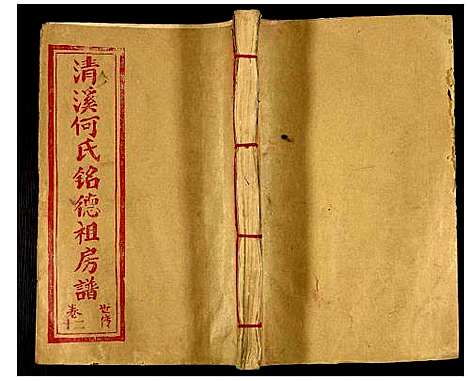 清溪何氏铭德祖房譜
世传
卷十二